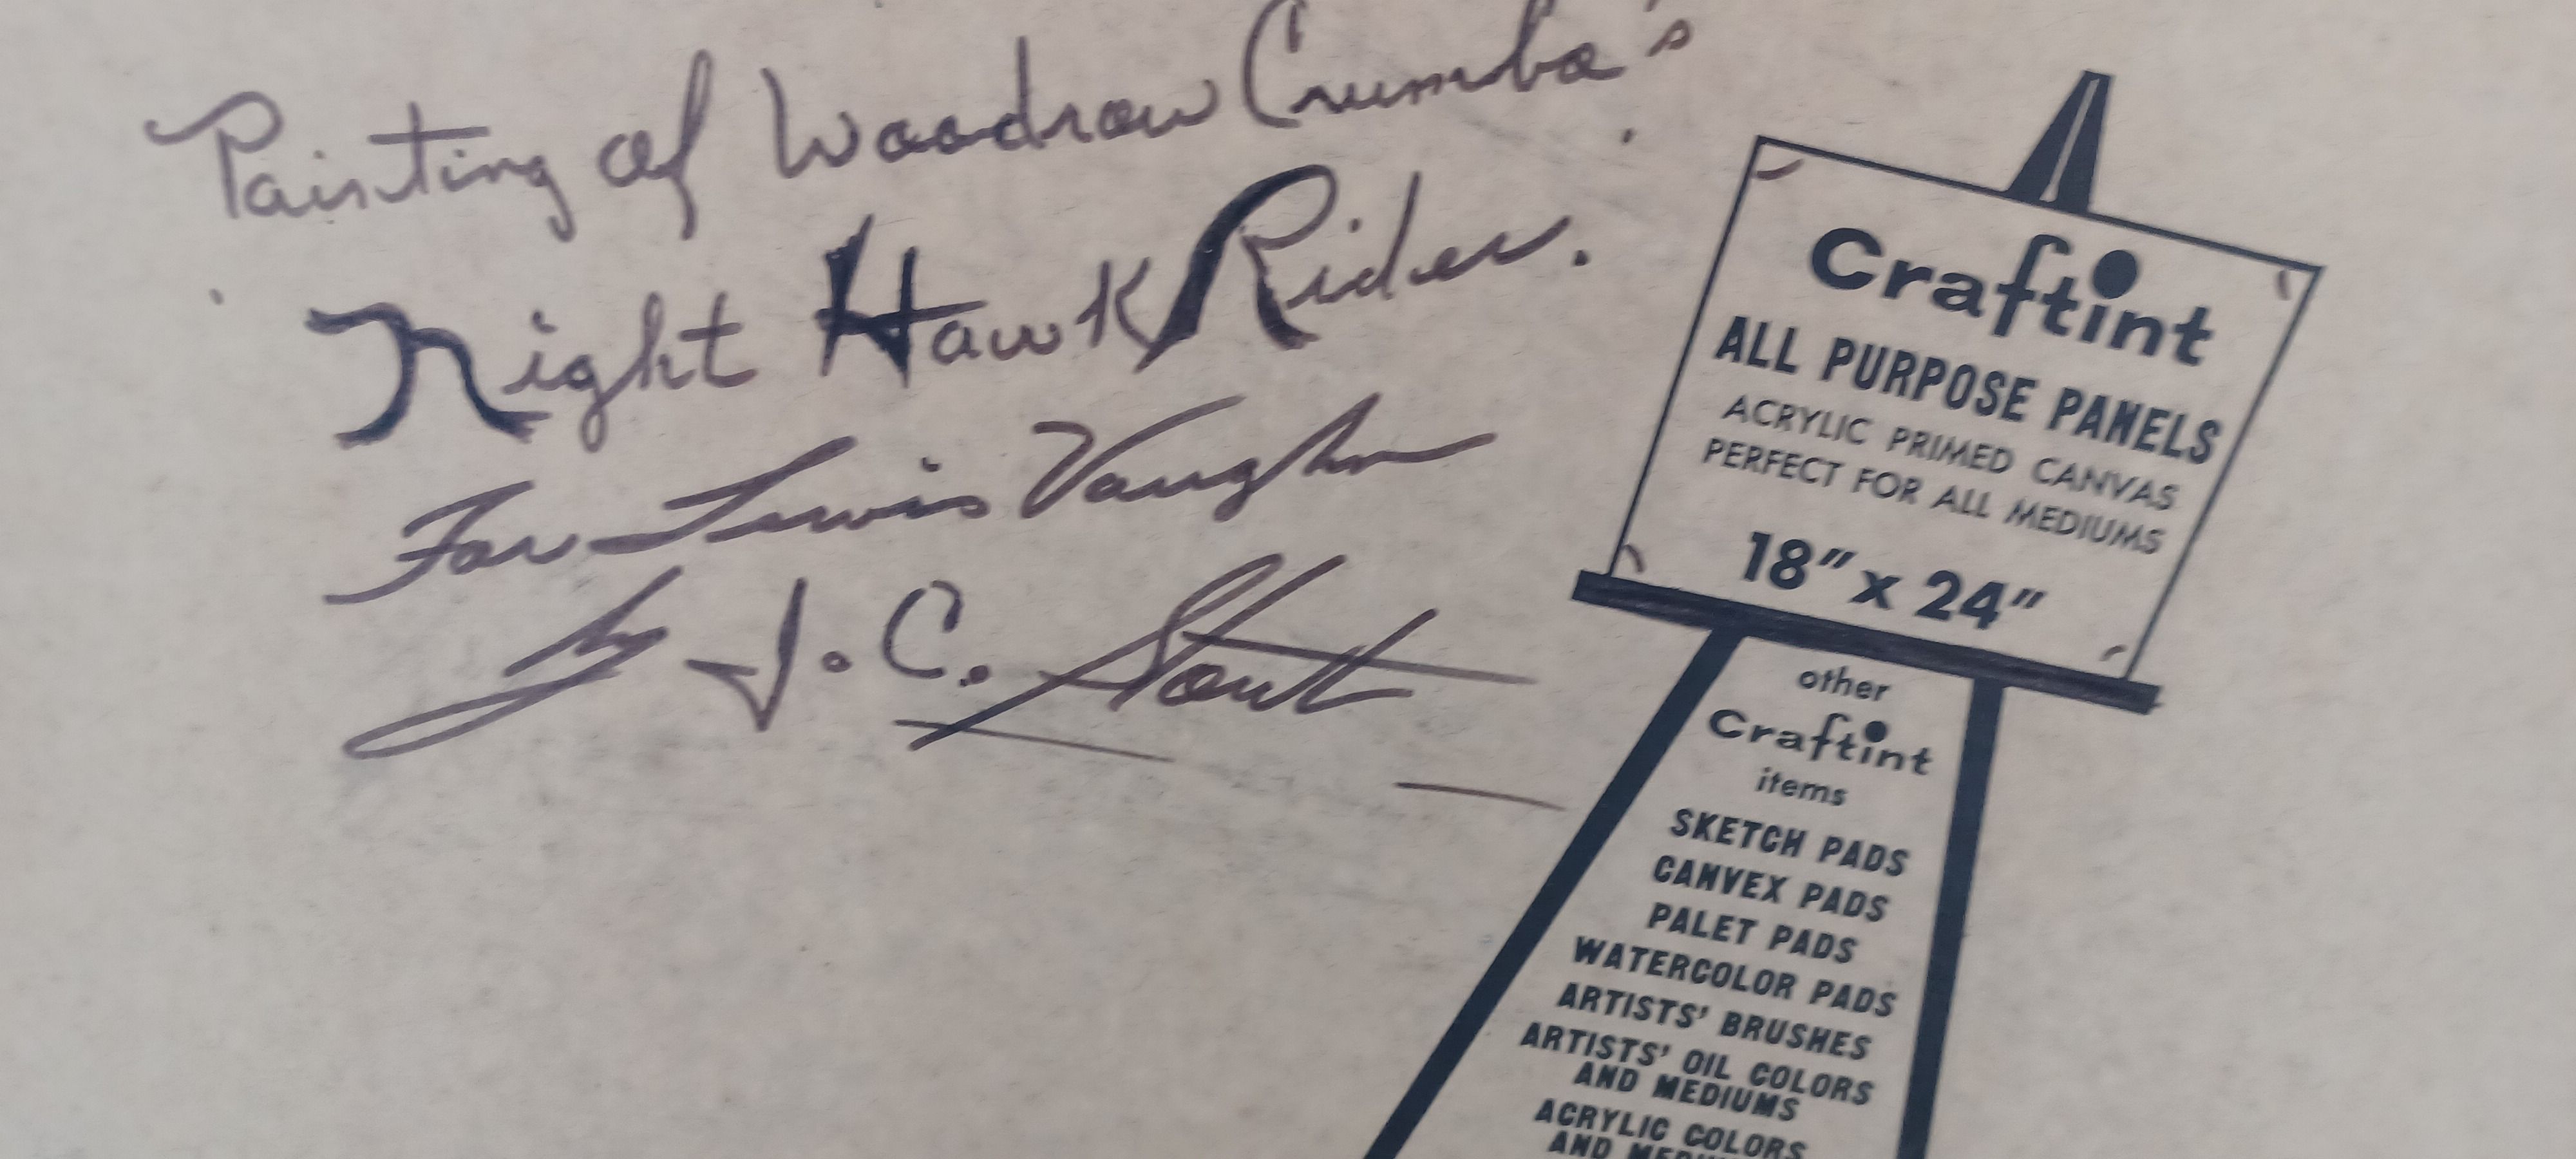 Painting of Woodrow Crumbo's
Night Hawk Rider.
For Lewis Vaughn
by J. C. Stout
Craftint
ALL PURPOSE PANELS
ACRYLIC PRIMED CANVAS
PERFECT FOR ALL MEDIUMS
18" x 24"
other
Craftint
items
SKETCH PADS
CANVEX PADS
PALET PADS
WATERCOLOR PADS
ARTISTS' BRUSHES
ARTISTS' OIL COLORS
AND MEDIUMS
ACRYLIC COLORS
AND